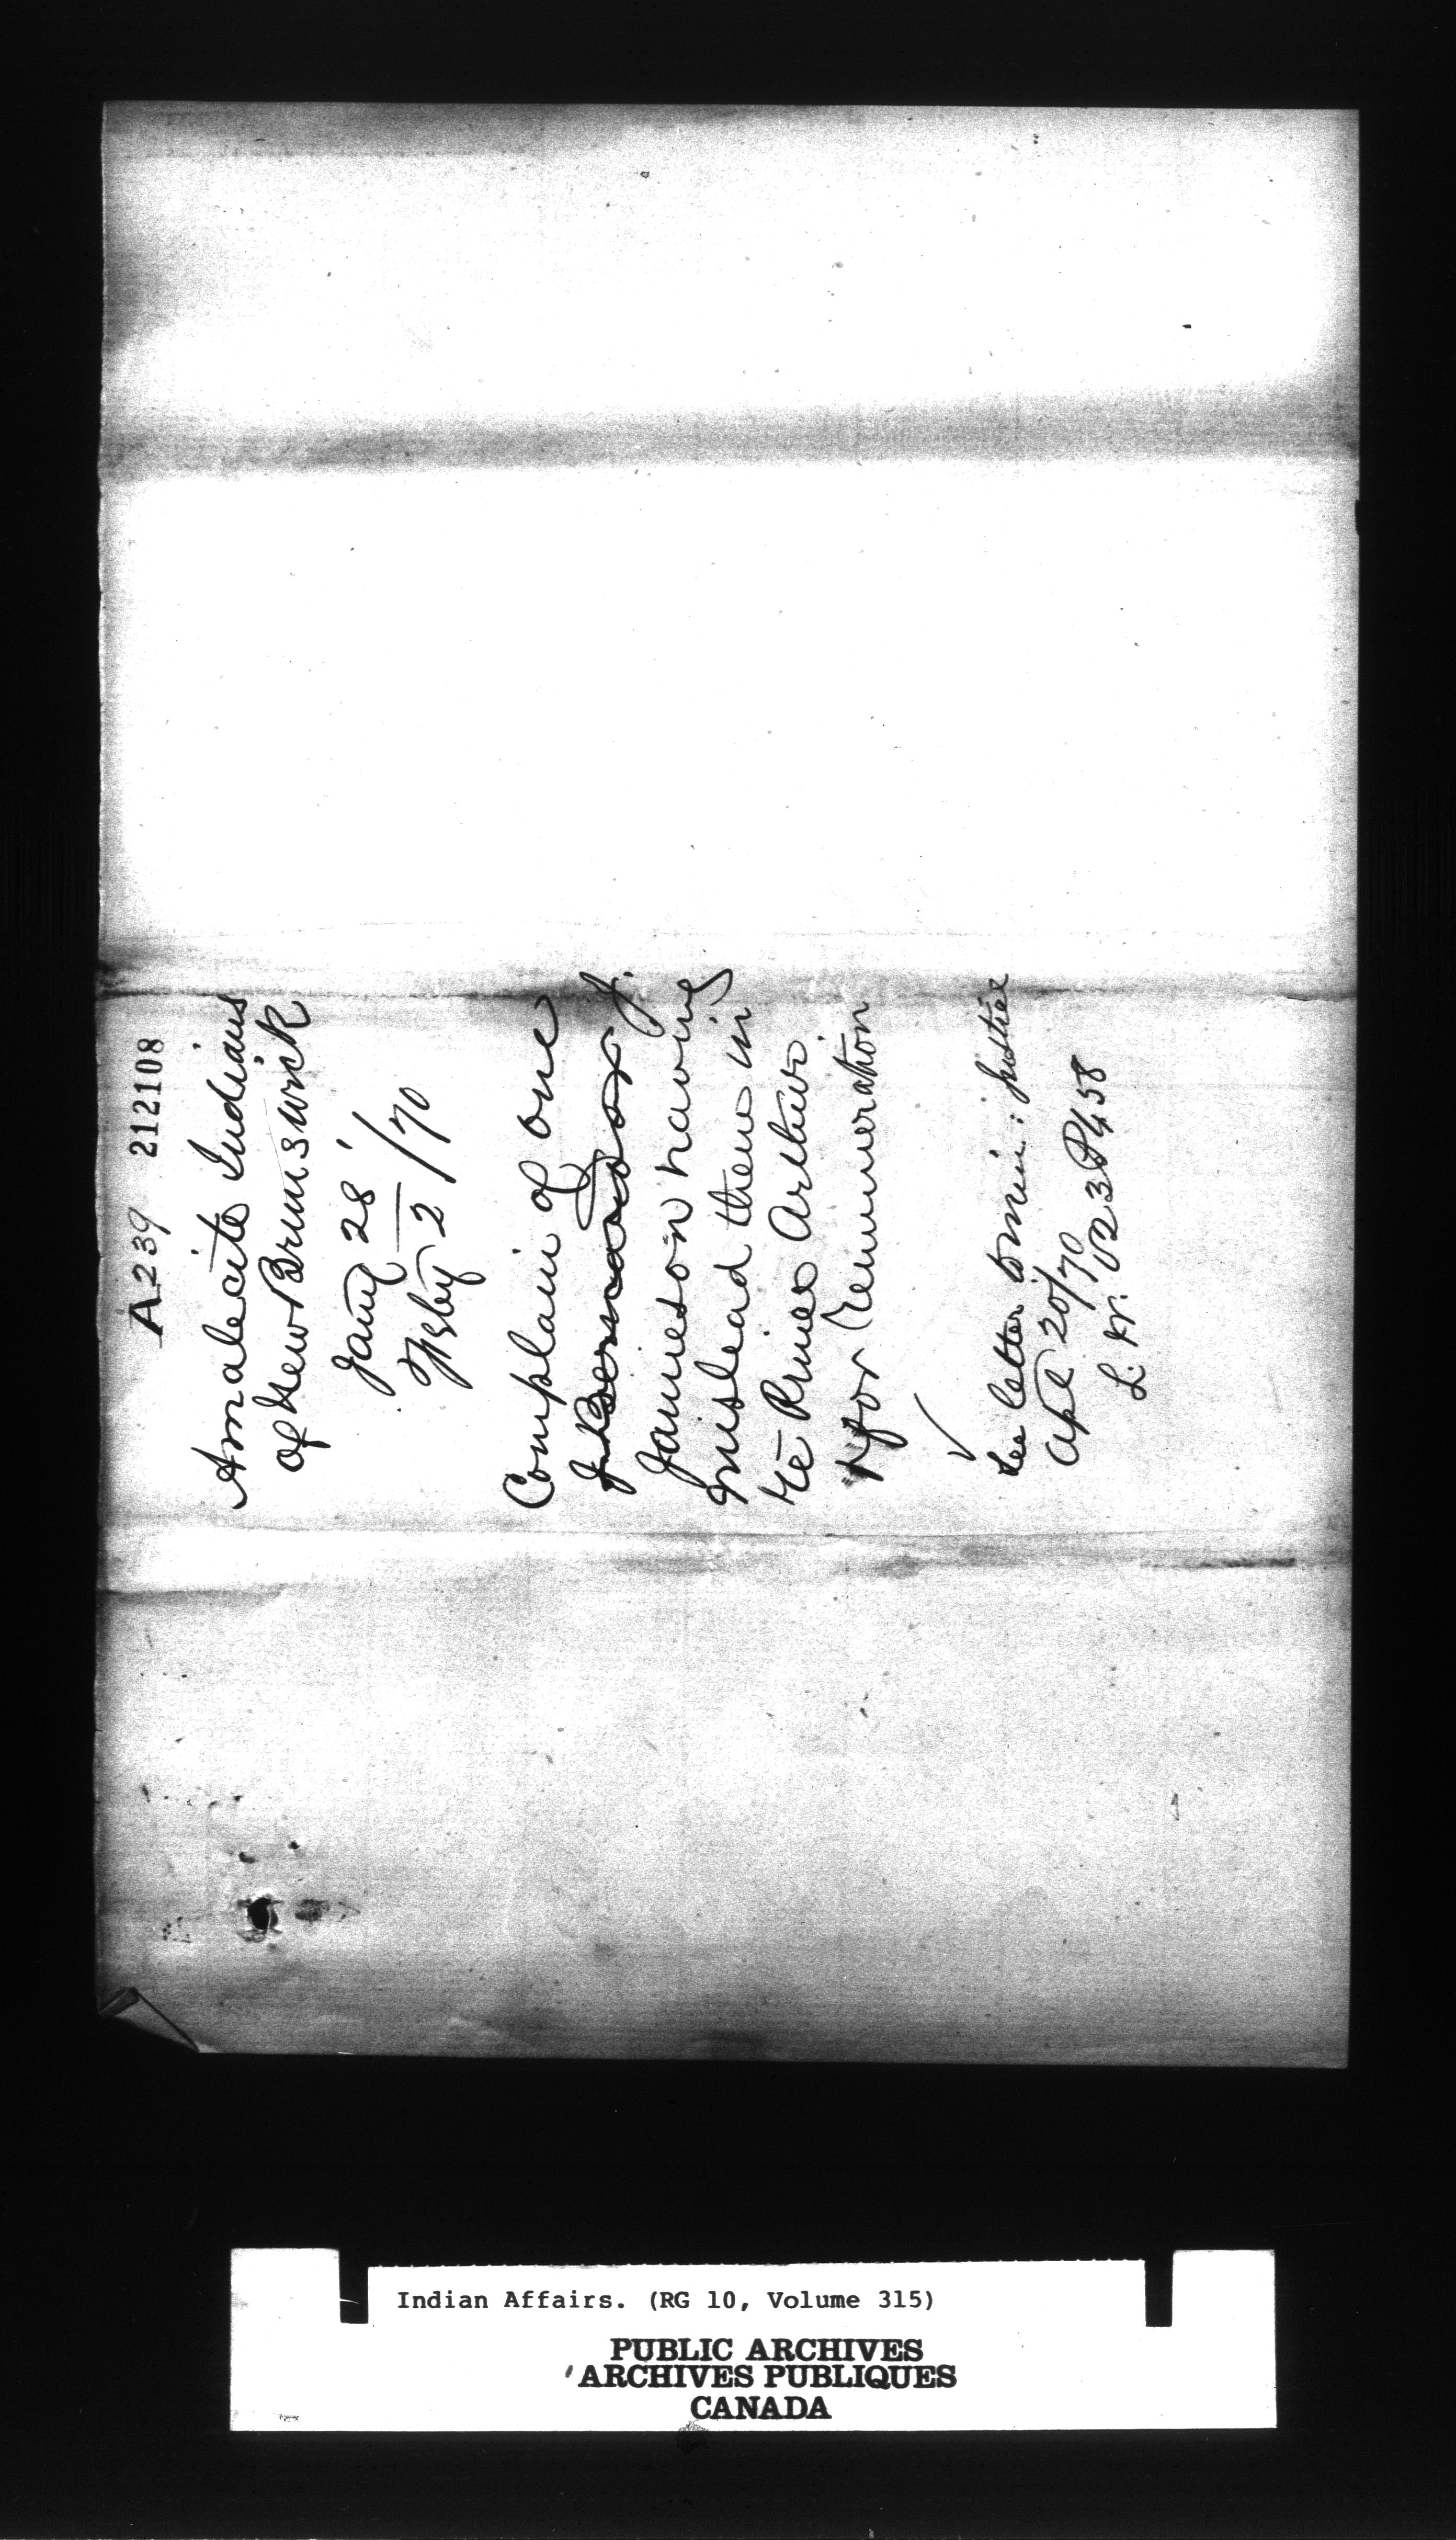 A239 212108
Amalecite Indians
of New Brunswick
Jany 28
Feby 2 / 70
Complain of one
J.
Jamieson having
mislead them in
re Prince Arthur
for remuneration
See letter Dmin: justice
Apl 20/70
L. Vr. 3 P458
Indian Affairs. (RG 10, Volume 315)
PUBLIC ARCHIVES
ARCHIVES PUBLIQUES
CANADA